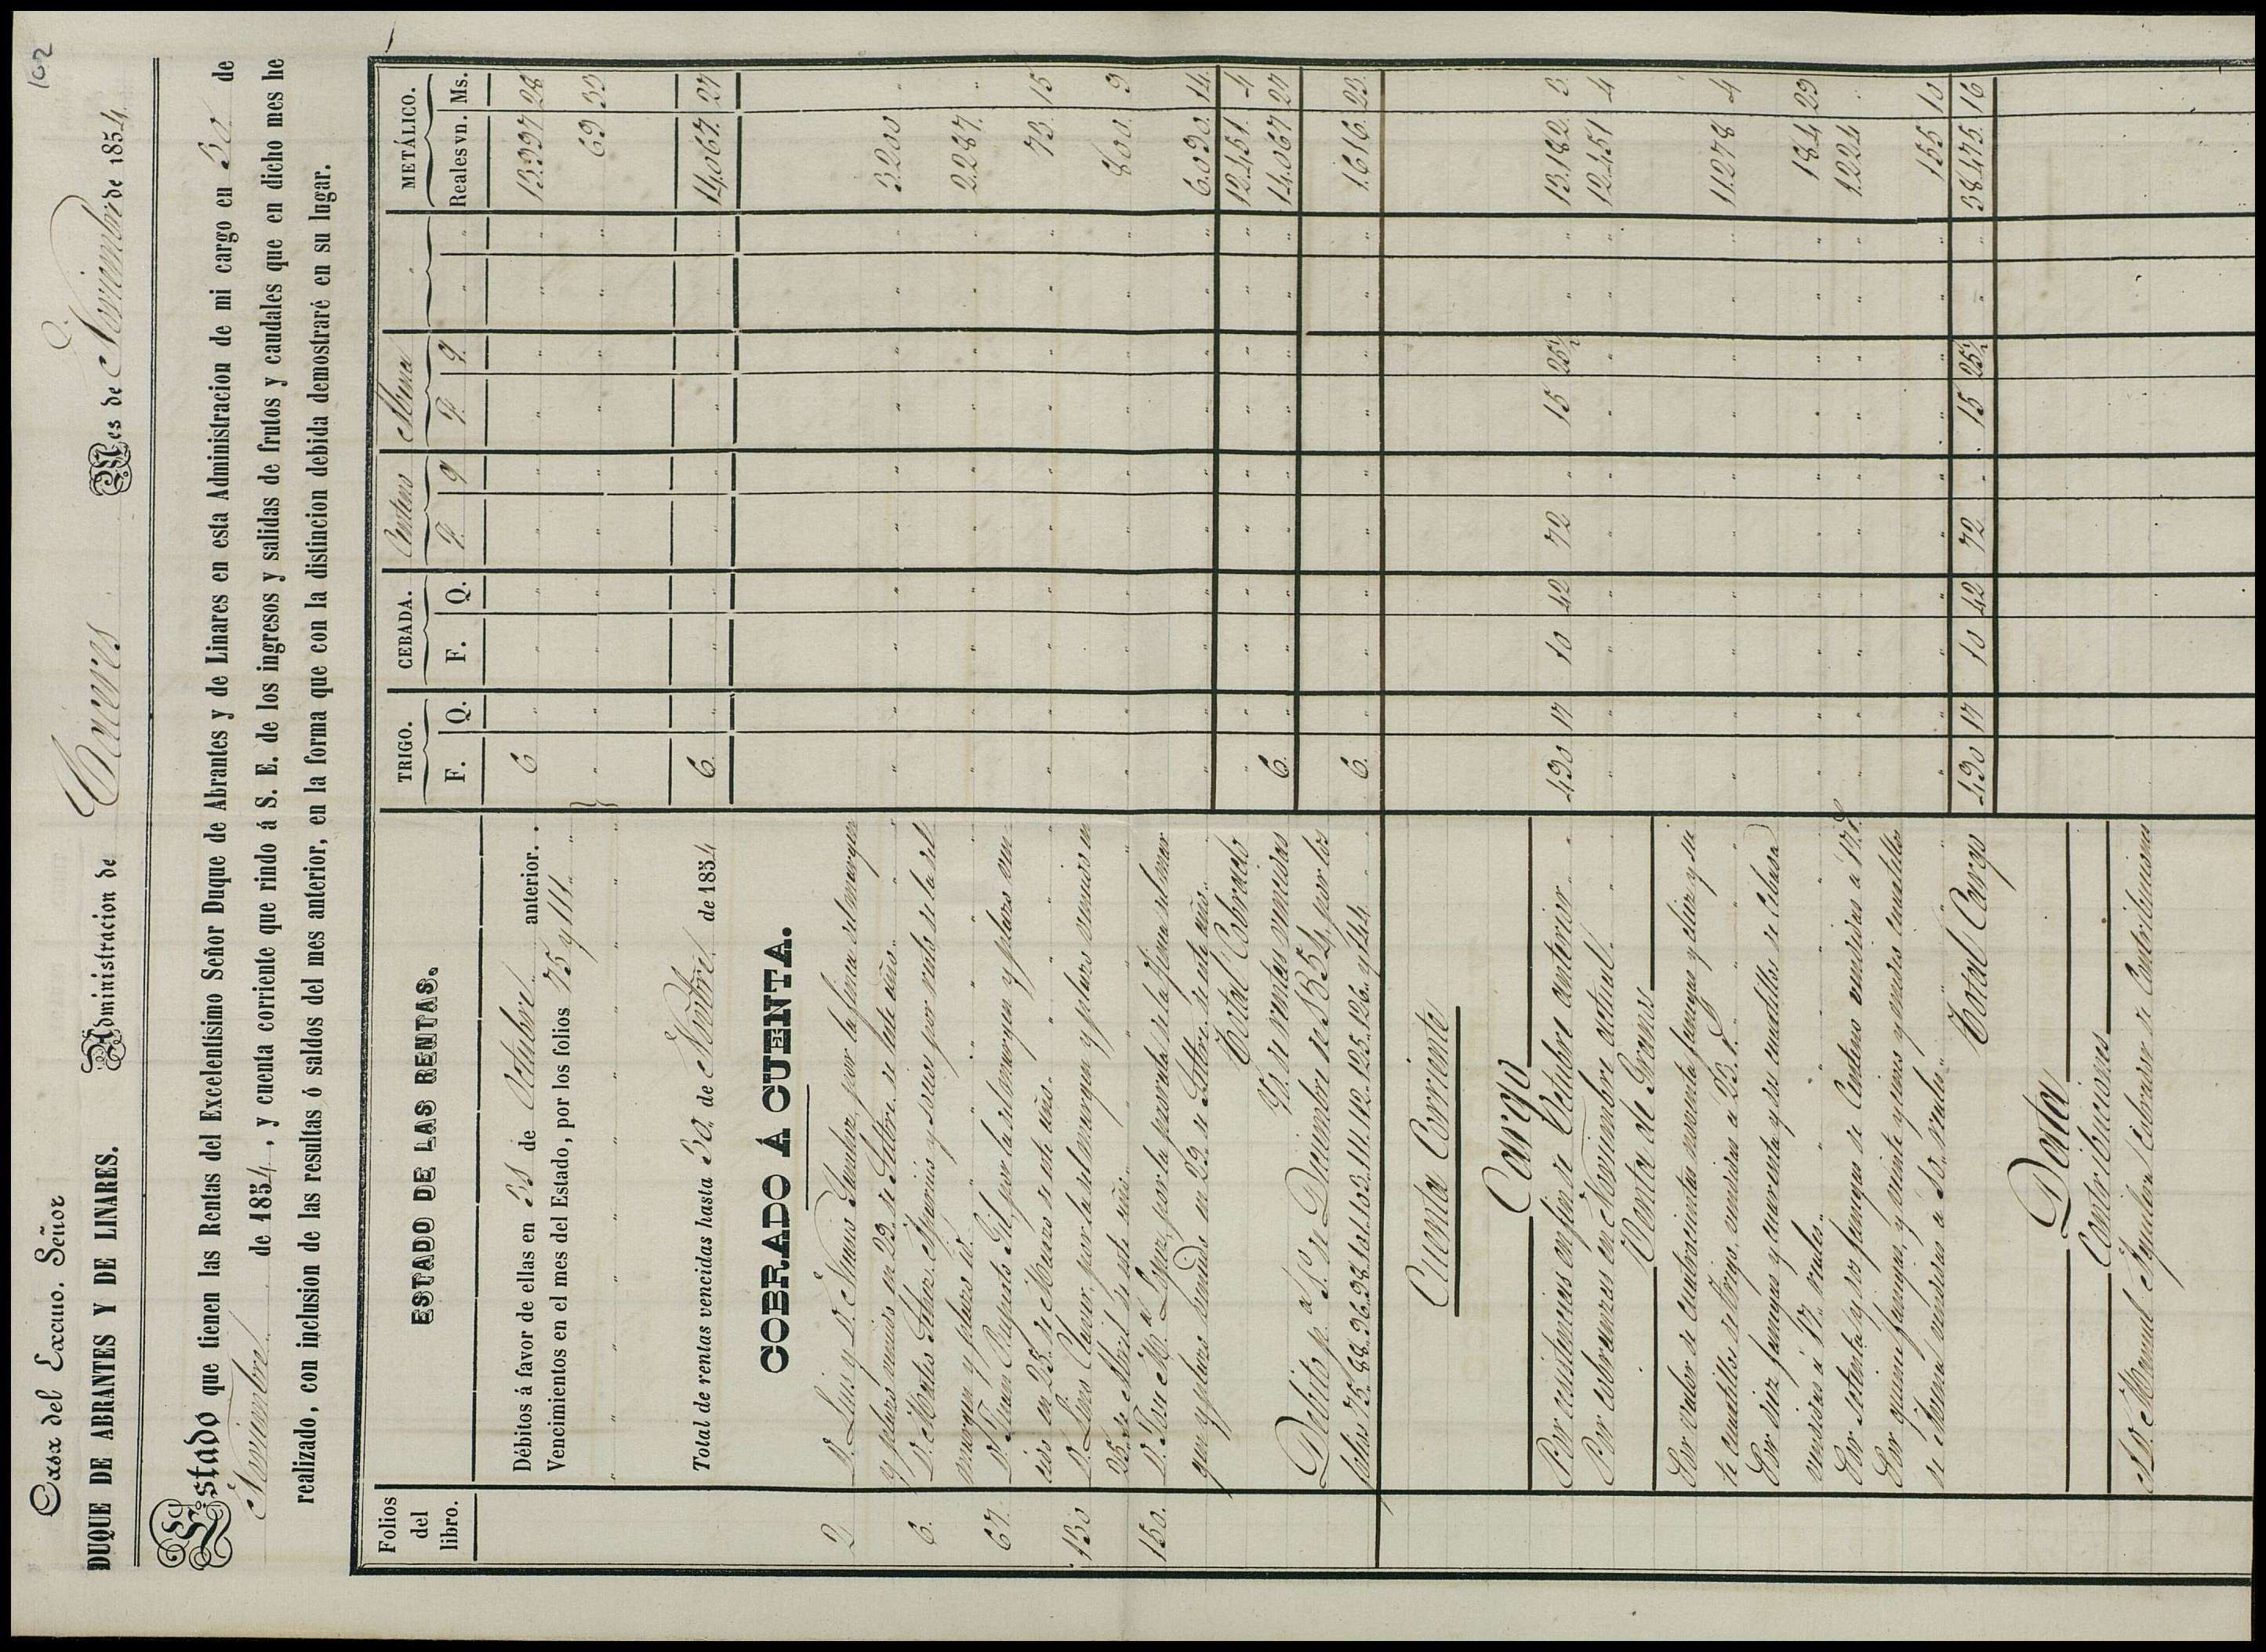 102
Casa del Excmo. Señor
DUQUE DE ABRANTES Y DE LINARES. Administracion de Cáceres Mes de Noviembre de 1854
Estado que tienen las Rentas del Excelentisimo Señor Duque de Abrantes y de Linares en esta Administracion de mi cargo en 30 de
Noviembre de 1854, y cuenta corriente que rindo á S. E. de los ingresos y salidas de frutos y caudales que en dicho mes he
realizado, con inclusion de las resultas ó saldos del mes anterior, en la forma que con la distincion debida demostraré en su lugar.
Folios del libro. ESTADO DE LAS RENTAS. TRIGO. CEBADA. Centeno Abena METÁLICO.
F. Q. F. Q. F. Q. F. Q. Reales vn. Ms.
Débitos á favor de ellas en 31 de Octubre anterior. 6 13.997 28
Vencimientos en el mes del Estado, por los folios 75 y 111 69 33
Total de rentas vencidas hasta 30 de Novbre de 1854 6 14.067 27
COBRADO Á CUENTA.
2 D. Luis y D. por la finca del margen
y plazo vencido en 29 de Setbre. de este año. 3.200
6. D. Matias Aparicio y socios por resto de la del
margen y plazo id. 2.287
67. D. Juan Ruperto Gil, por la del margen y plazo ven-
cido en 25 de Marzo de este año. 73. 15
130 D. Lino por la del margen y plazo vencido en
25 de Abril de este año. 800. 9
150. D. José M.ª Lopez, por la prorrata de la finca del mar-
gen y plazo vencido en 29 de Setbre. de este año. 6.090. 14.
Total Cobrado 12.451. 4
Yd. de rentas vencidas 6. 14.067 27
Debito p.ª 1.º de Diciembre de 1854, por los
folios 75. 88. 96. 98. 101. 103. 111. 112. 125. 126. y 144 6. 1.616. 23.
Cuenta Corriente
Cargo
Por existencias en fin de Octubre anterior 490 17 10 42 72 15 25½ 13.182. 3.
Por cobranzas en Noviembre actual. 12.451 4
Venta de Granos
Por valor de cuatrocientas noventa fanegas y diez y sie-
te cuartillos de trigo, vendidas á 23 r.s 11.278 4
Por diez fanegas y cuarenta y dos cuartillos de Cebada
vendidas á 17 reales. 184 29
Por setenta y dos fanegas de Centeno vendidas á 17 r.s 1.224
Por quince fanegas, y veinte y cinco y medio cuartillos
de Abena vendidas á 10 reales. 155 10
Total Cargo 490 17 10 42 72 15 25½ 38.475. 16
Data
Contribuciones
A D. Manuel Aguilar Cobrador de Contribuciones